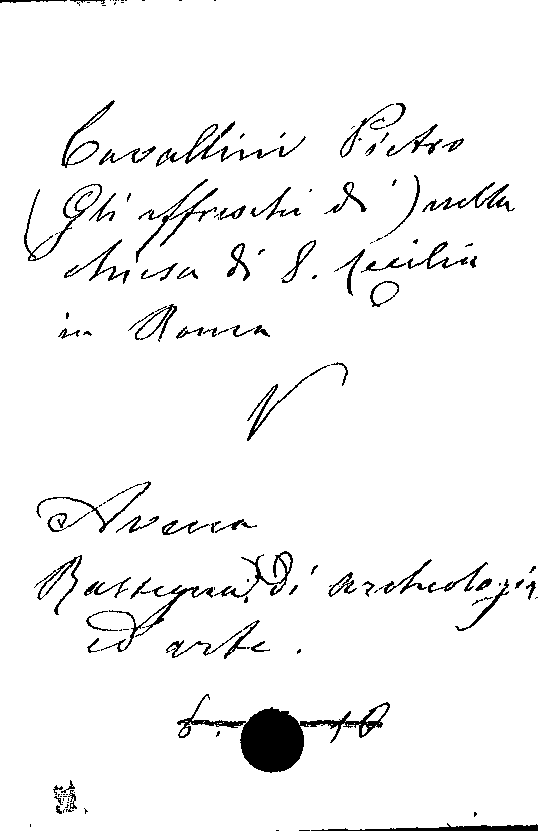 Cavallini Pietro
(Gli affreschi di) nella
chiesa di S. Cecilia
in Roma
V
Avena
Rassegna di archeologia
ed arte.